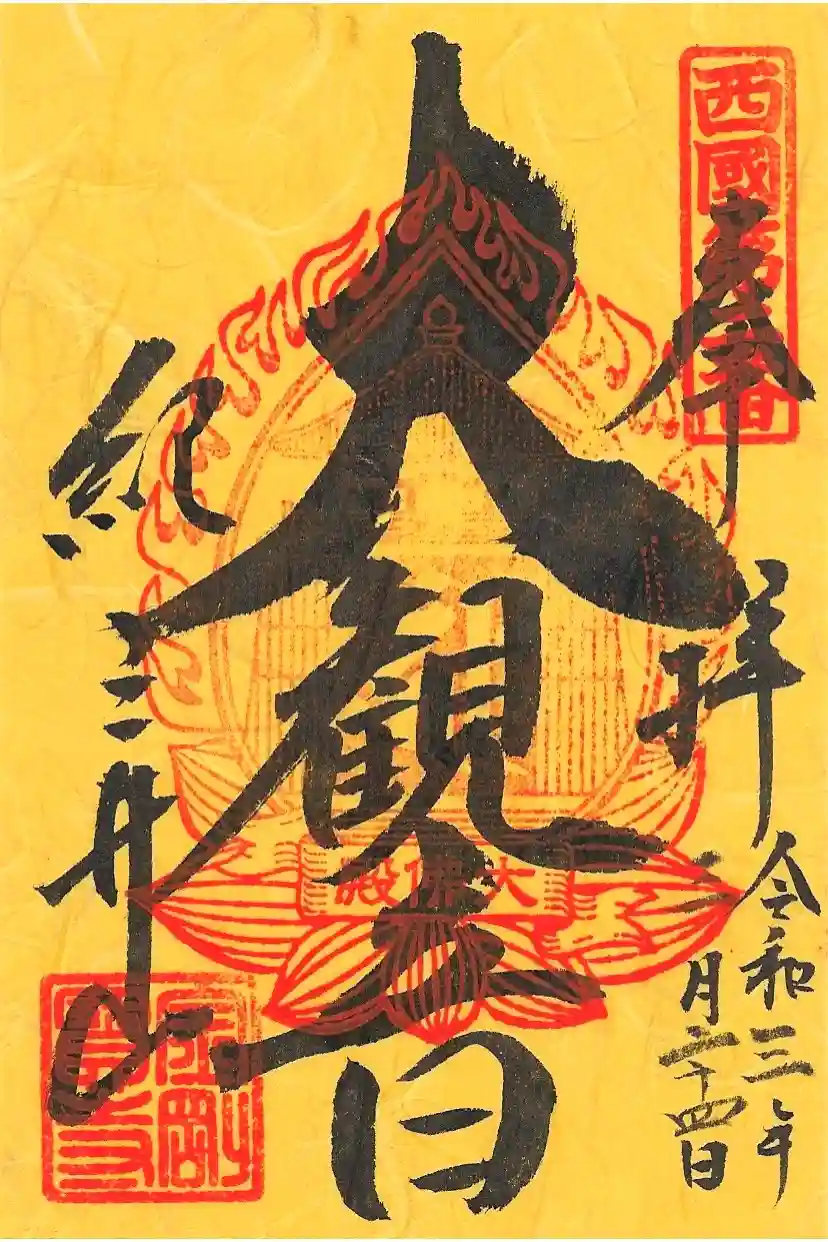 西國第二番
奉拝
令和三年
二月二十四日
大観音
大佛殿
紀三井寺
金剛
寶寺